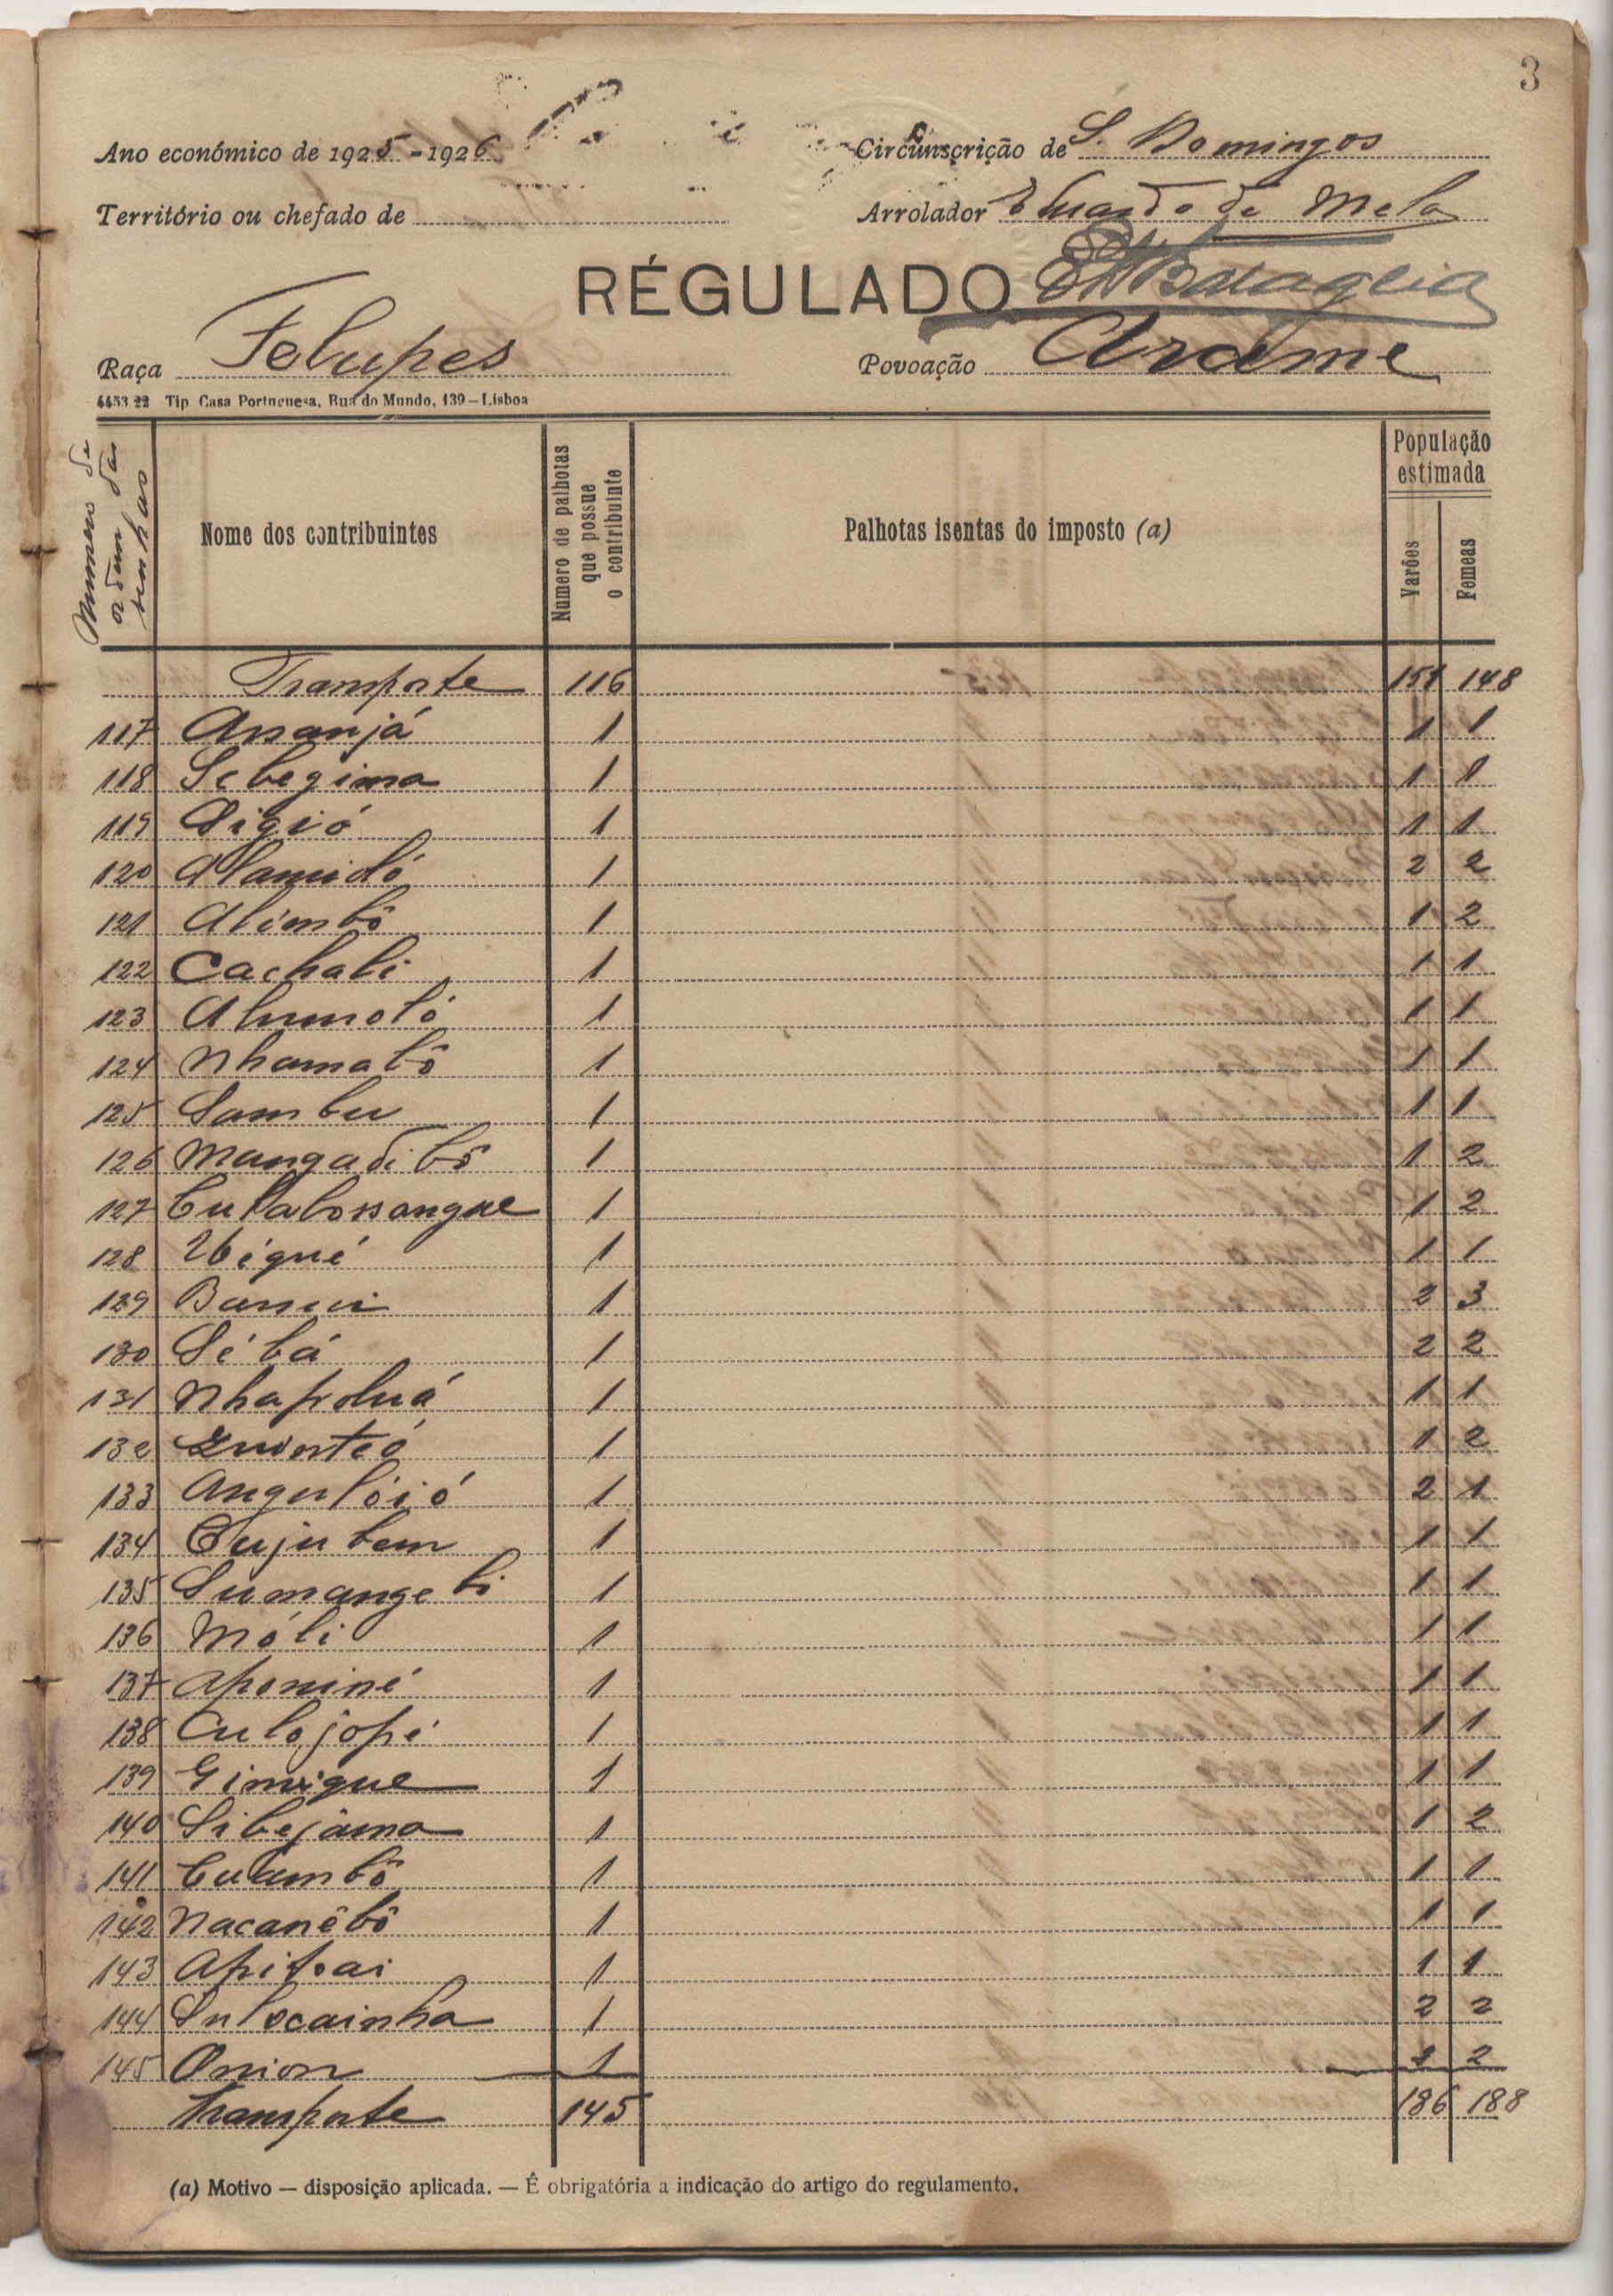 3
Ano económico de 1925-1926
Circunscrição de S. Domingos
Território ou chefado de
Arrolador Eduardo de Melo
RÉGULADO
Raça Felupes
Povoação Arame
4453 22 Tip. Casa Portuguesa, Rua do Mundo, 139—Lisboa
Numero de ordem das senhas
Nome dos contribuintes
Numero de palhotas que possue o contribuinte
Palhotas isentas do imposto (a)
População estimada
Varões
Femeas
Transporte 116 151 148
117 Assanjá 1 1 1
118 Sebegima 1 1 1
119 Sigió 1 1 1
120 1 2 2
121 Alimbô 1 1 2
122 Cachali 1 1 1
123 1 1 1
124 Nhamabô 1 1 1
125 Sambu 1 1 1
126 Mangadibô 1 1 2
127 1 1 2
128 1 1 1
129 1 2 3
130 Sébá 1 2 2
131 Nhapoluá 1 1 1
132 1 1 2
133 1 2 1
134 Cujubem 1 1 1
135 1 1 1
136 Móli 1 1 1
137 Aponiné 1 1 1
138 Culojopé 1 1 1
139 1 1 1
140 Sibejama 1 1 2
141 Culumbô 1 1 1
142 Nacanêbô 1 1 1
143 1 1 1
144 1 2 2
145 Onion 1 1 2
Transporte 145 186 188
(a) Motivo — disposição aplicada. — É obrigatória a indicação do artigo do regulamento.